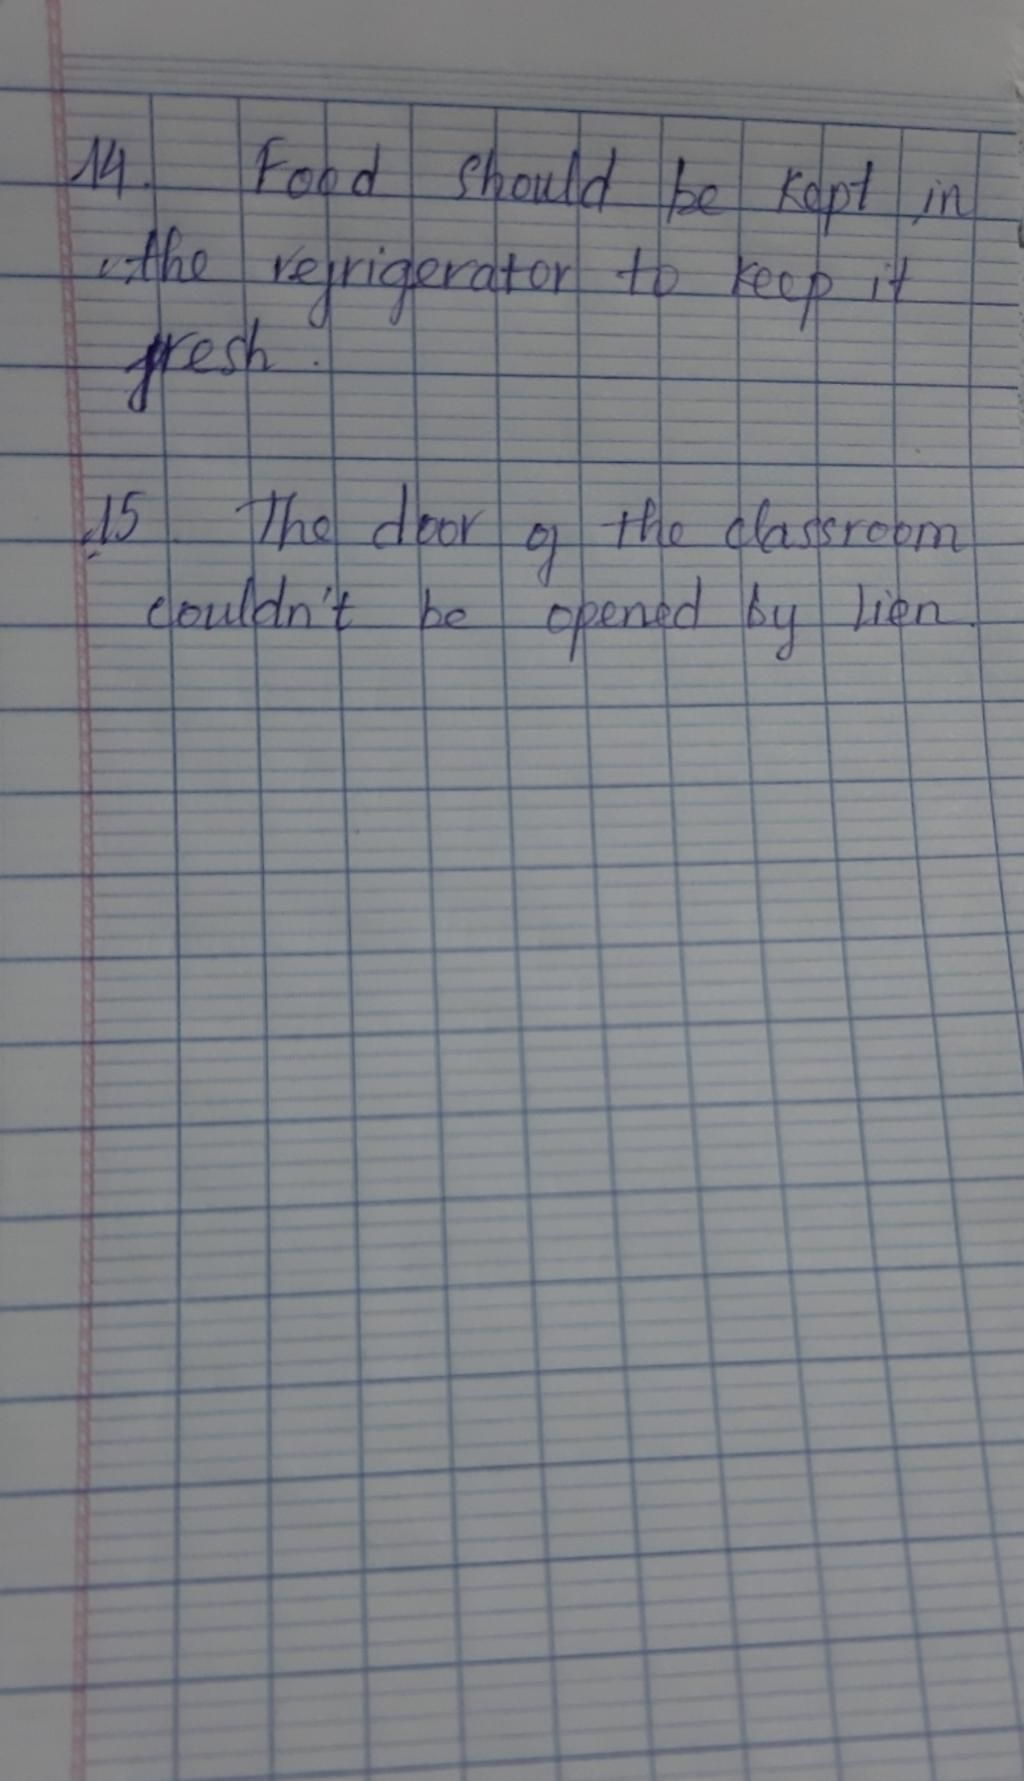 14. Food should be kept in
the refrigerator to keep it
fresh.
15. The door of the classroom
couldn't be opened by Lien.